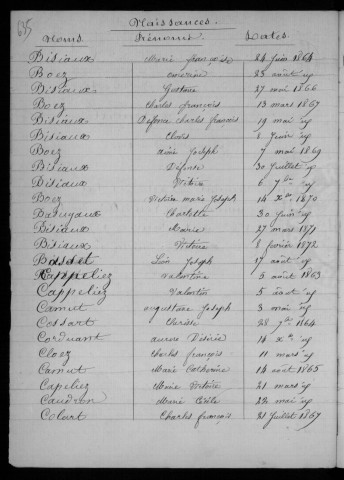 635
Naissances.
Noms Prénoms Dates
Bisiaux Marie françoise 24 Juin 1864
Boez 25 août
Bisiaux Gustave 27 mai 1866
Boez Charles françois 13 mars 1867
Bisiaux Charles françois 19 mai
Bisiaux Clovis Juin
Boez aimé Joseph 7 mai 1869
Bisiaux Désirée 30 Juillet
Bisiaux 6 7bre
Boez marie Joseph 14 Xbre 1870
Charlotte 30 Juin
Bisiaux Marie 27 mars 1871
Bisiaux Victoire 8 février 1872
Basset Léon Joseph 17 août
Cappeliez Valentine 5 août 1863
Cappeliez Valentin 5 août
Camut augustine Joseph 3 mai
Cossart 28 7bre 1864
Corduant aurore Désirée 14 Xbre
Cloez Charles françois 11 mars
Camut Marie Catherine 14 août 1865
Capeliez Marie Victoire 21 mars
Caudron Marie 22 mai
Colart Charles françois 21 Juillet 1867